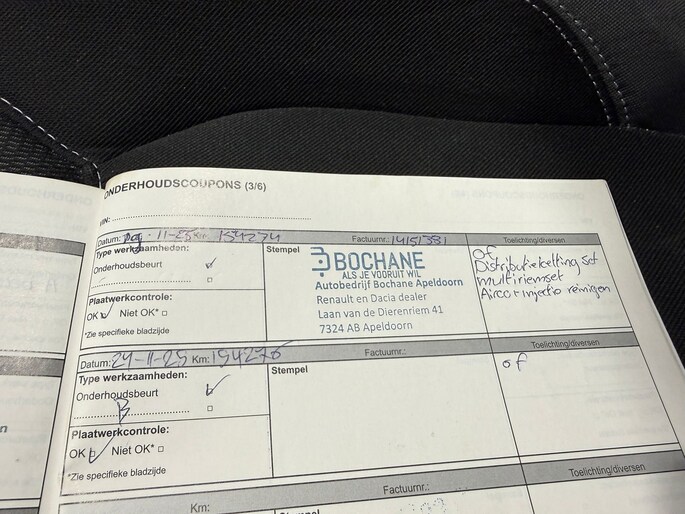 ONDERHOUDSCOUPONS (3/6)
VIN:
Datum: 11-25 Km: 154274 Factuurnr.: 14151381 Toelichting/diversen
Type werkzaamheden:
Onderhoudsbeurt
Plaatwerkcontrole:
OK Niet OK*
*Zie specifieke bladzijde
Stempel
BOCHANE
ALS JE VOORUIT WIL
Autobedrijf Bochane Apeldoorn
Renault en Dacia dealer
Laan van de Dierenriem 41
7324 AB Apeldoorn
of
Distributieketting set
multiriemset
Airco+injectio reinigen
Datum: 24-11-25 Km: 154276 Factuurnr.: Toelichting/diversen
Type werkzaamheden:
Onderhoudsbeurt
B
Plaatwerkcontrole:
OK Niet OK*
*Zie specifieke bladzijde
Stempel
of
Km: Factuurnr.: Toelichting/diversen
Stempel